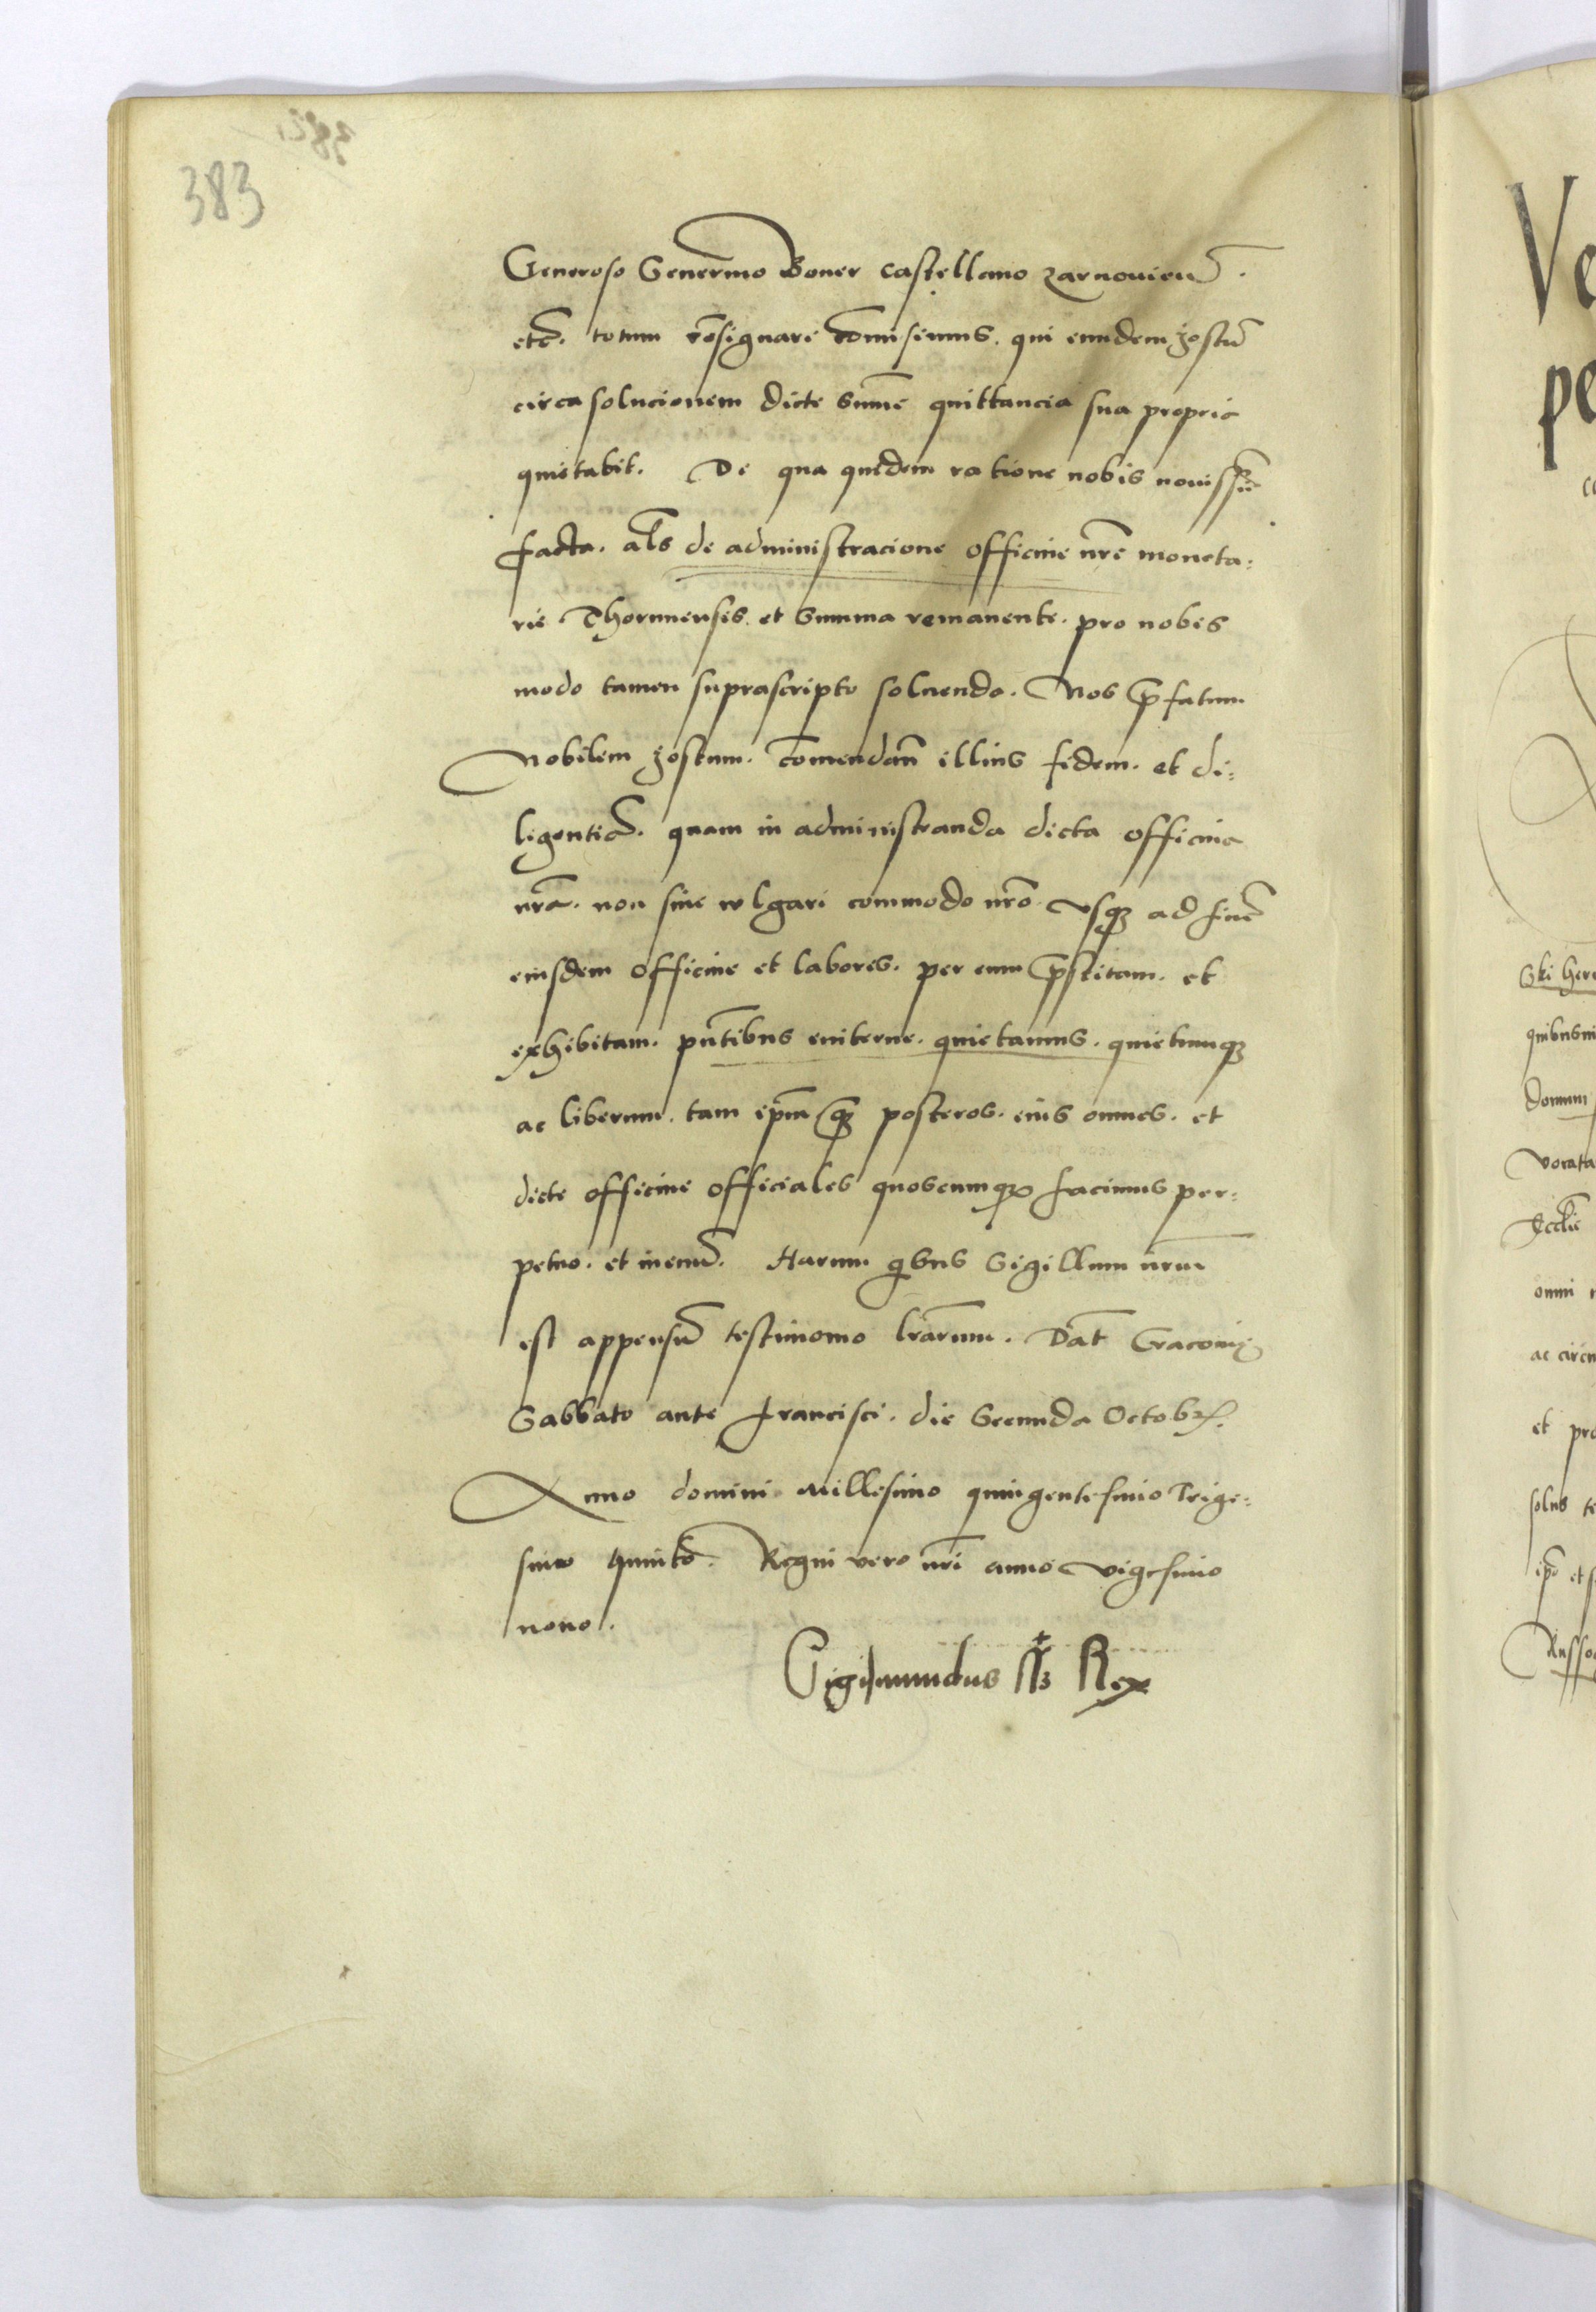 383
Generoso Severino Boner Castellano Zarnovien̄.
etc̄. totum cōsignari cōmisimus. qui eundem Jostū
circa solucionem dicte sum̄e quittancia sua propria
quietabit. De qua quidem ratione nobis novissīe
facta. al̄s de administracione officine nr̄e moneta:
rie Thorunensis. et summa remanente. pro nobis
modo tamen suprascripto soluenda. Nos p̄fatum
Nobilem Jostum. cōmendan̄ illius fidem. et di:
ligentiā. quam in administranda dicta officina
nr̄a. non sine wlgari commodo nr̄o. vsqꝫ ad finē
eiusdem officine et labores. per eum p̄stitam. et
exhibitam. pn̄tibus eviterne. quietamus. quietumqꝫ
ac liberum. tam ip̄m qꝫ posteros. eius omnes. et
dicte officine officiales quoscumqꝫ facimus per:
petuo. et in evū. Harum qibus Sigillum nr̄um
est appensū testimonio lr̄arum. Dat̄ Cracovię
Sabbato ante Francisci. die Secunda Octobr̄.
Anno domini Millesimo quingentesimo Trige:
simo quinto. Regni vero nr̄i anno vigesimo
nono.
Sigismundus Rex
Ve
pe
Ski here
quibusvi
domum
vocata
Eccl̄ie
omni
ac circu
et pro
solus te
ip̄o et s
Russo